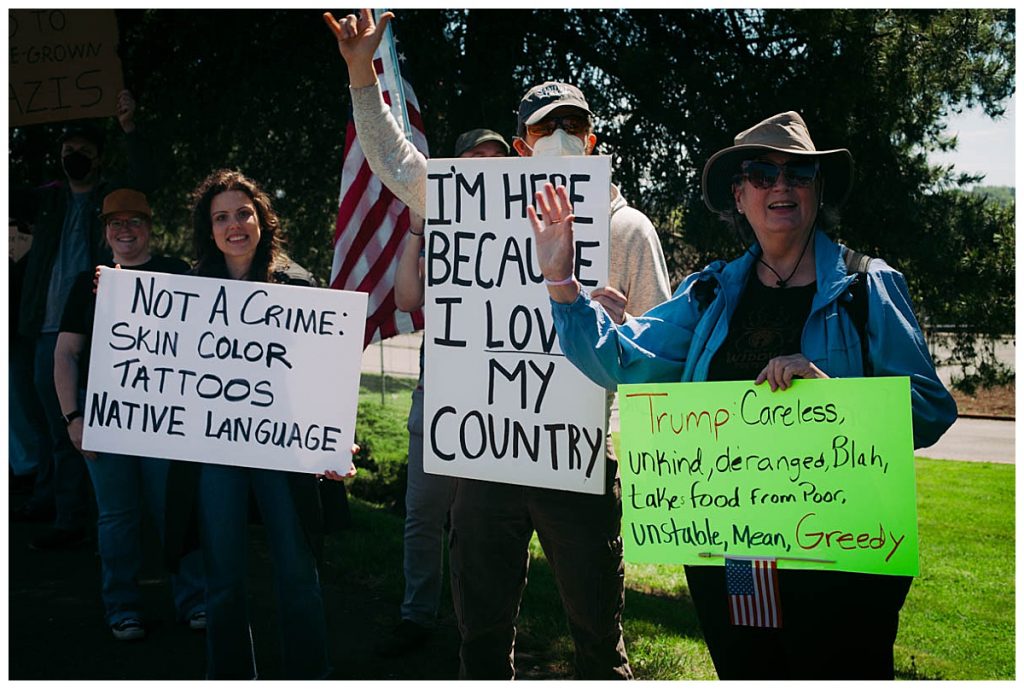 TO
E-GROWN
AZIS
NOT A CRIME:
SKIN COLOR
TATTOOS
NATIVE LANGUAGE
I'M HERE
BECAUSE
I LOV
MY
COUNTRY
Trump: Careless,
unkind, deranged, Blah,
takes food from Poor,
unstable, Mean, Greedy